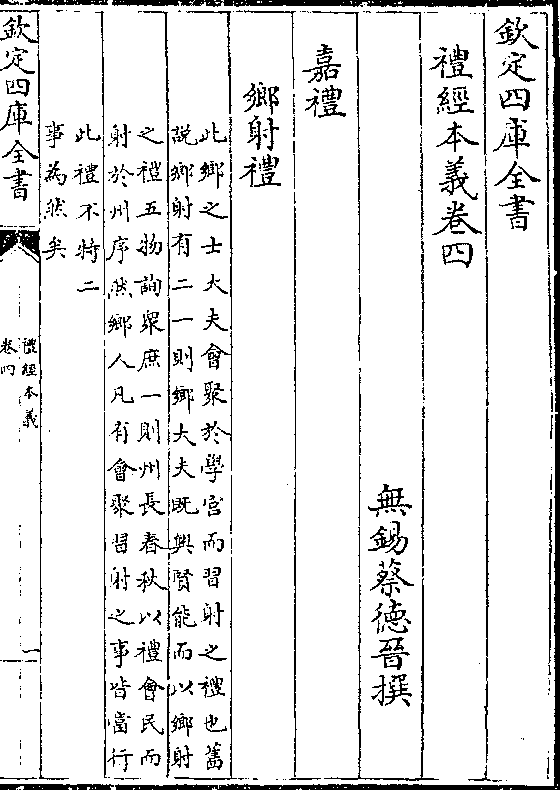 欽定四庫全書
禮經本義卷四
無錫蔡德晉撰
嘉禮
鄉射禮
此鄉之士大夫會聚於學宮而習射之禮也舊
說鄉射有二一則鄉大夫既興賢能而以鄉射
之禮五物詢衆庶一則州長春秋以禮會民而
射於州序然鄉人凡有會聚習射之事皆當行
此禮不特二
事為然矣
欽定四庫全書
禮經本義
卷四
一